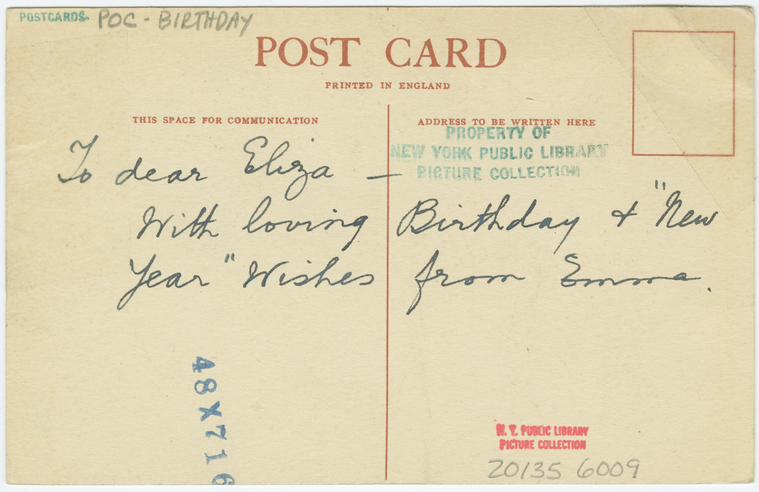 POSTCARDS POC - BIRTHDAY
POST CARD
PRINTED IN ENGLAND
THIS SPACE FOR COMMUNICATION
ADDRESS TO BE WRITTEN HERE
PROPERTY OF
NEW YORK PUBLIC LIBRARY
PICTURE COLLECTION
To dear Eliza —
With loving Birthday & "New
Year" Wishes from Emma.
48X716
N. Y. PUBLIC LIBRARY
PICTURE COLLECTION
20135 6009